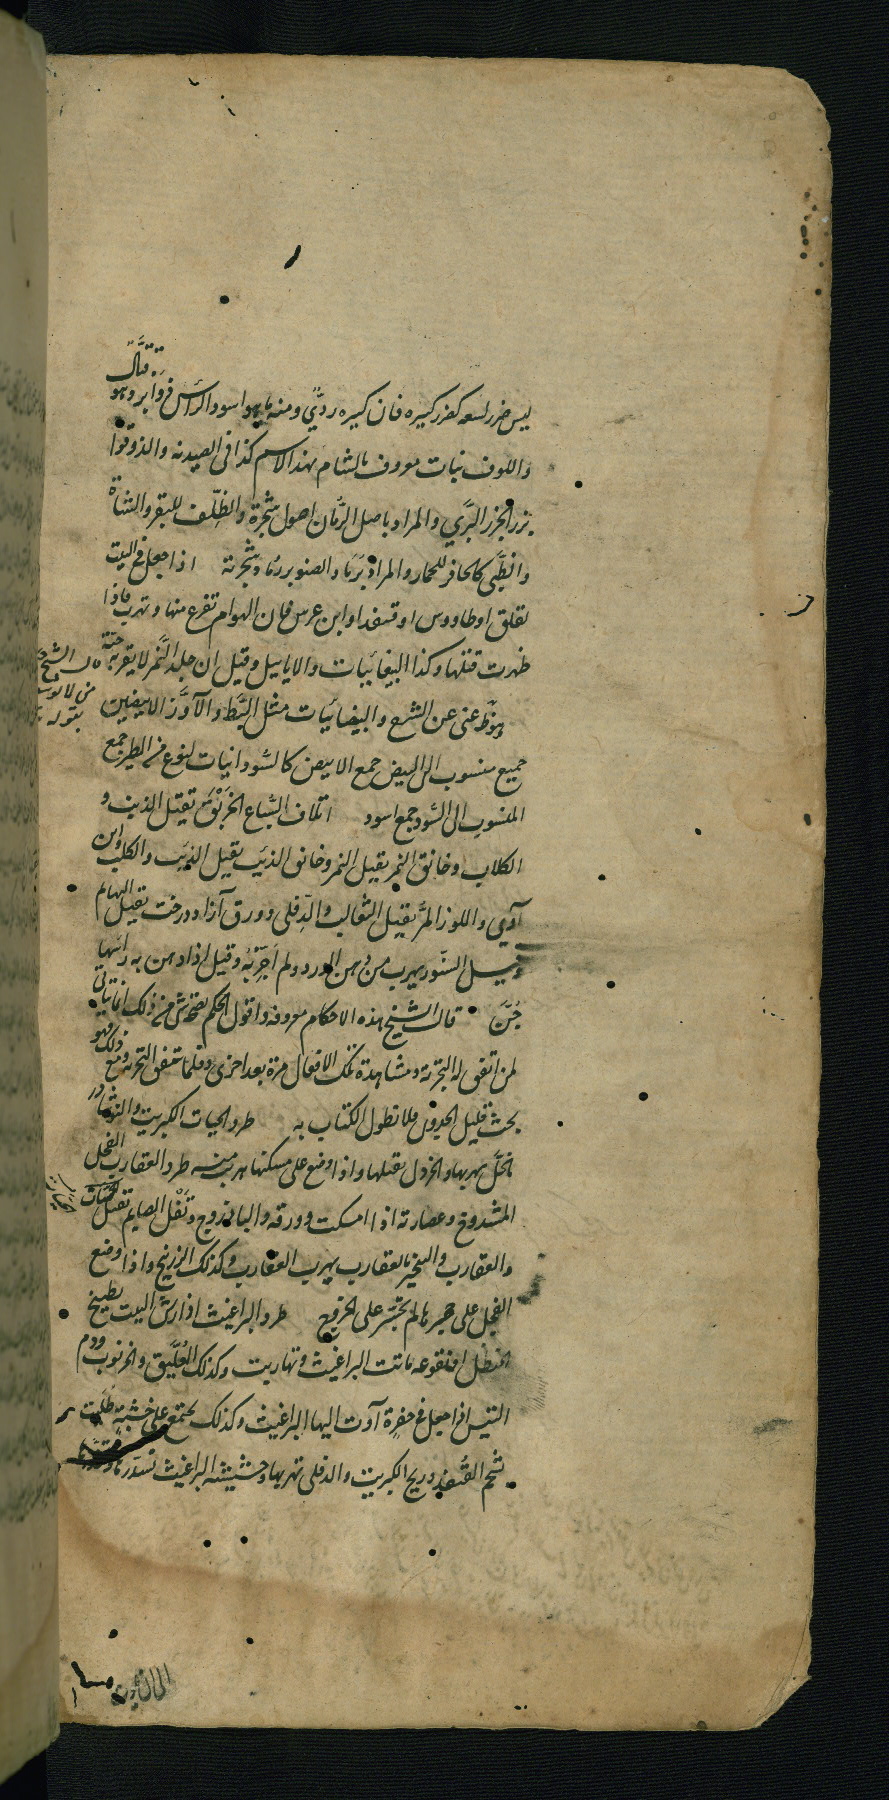 ليس ضرر لسعه كضرر كبيره فان كبيره ردّي ومنه ما هو اسود الراس وهو قتّال
واللوف نبات معروف بالشام بهذا الاسم كذا في الصيدنه والدوقوا
بزر الجزر البرّي والمراد باصل الرّمان اصول شجرة والظّلف للبقر والشاة
والظّبي كالحافر للحمار والمراد والصنوبر اذا جعل في البيت
تقلق او طاووس او قنفد او ابن عرس فان الهوام تفزع منها وتهرب فاذا
ظهرت قتلها وكذا البيغائيات والاياييل وقيل ان جلد النّمر لا يقربه حيّة قال الشيخ
عن الشرع والبيضانيّات مثل البّط والآوزّ الابيضين
جميع منسوب الى البيض جمع الابيض كالسّودانيات لنوع من الطير جمع
المنسوب الى السّود جمع اسود اتلاف السّباع الخربق تقتل الذيب و
الكلاب وخانق النمر يقتل النمر وخانق الذيب يقتل الذيب والكلب وابن
آوي واللوز المرّ يقتل الثعالب والدّفلى وورق آزاد درخت يقتل البهايم
وقيل السّنّور يهرب من دهن الورد ولم اجرّبه وقيل اذا دهن به راسها
جُنّ قال الشيخ هذه الاحكام معروفة واقول الحكم بصحة شي من ذلك انما يتاتى
لمن اتفق له التجربة ومشاهدة تلك الافعال مرة بعد اخرى وقلما تتفق التجربة ومع ذلك فهو
بحث قليل الجدوى فلا نطول الكتاب به طرد الحيات الكبريت والنوشادر
بالخلّ يهربها والخردل يقتلها واذا وضع على مسكنها هربت منه طرد العقارب الفجل
المشدوخ وعصارته اذا امسكت وورقه والباذروج وتَفْل الصايم تقتل الحيّات
والعقارب والتبخير بالعقارب يهرب العقارب وكذلك الزرنيخ واذا وضع
الفجل على جحرها لم تجسر على الخروج طرد البراغيث اذا رش البيت بطبيخ
الحنظل او نقوعه ماتت البراغيث وتهاربت وكذلك العُلّيق والخرنوب ودم
التيس اذا جعل في حفرة آوت اليها البراغيث وكذلك تجتمع على خشبة طُلِيت
شحم القُنفد وريح الكبريت والدفلى تهربها وحشيشة البراغيث